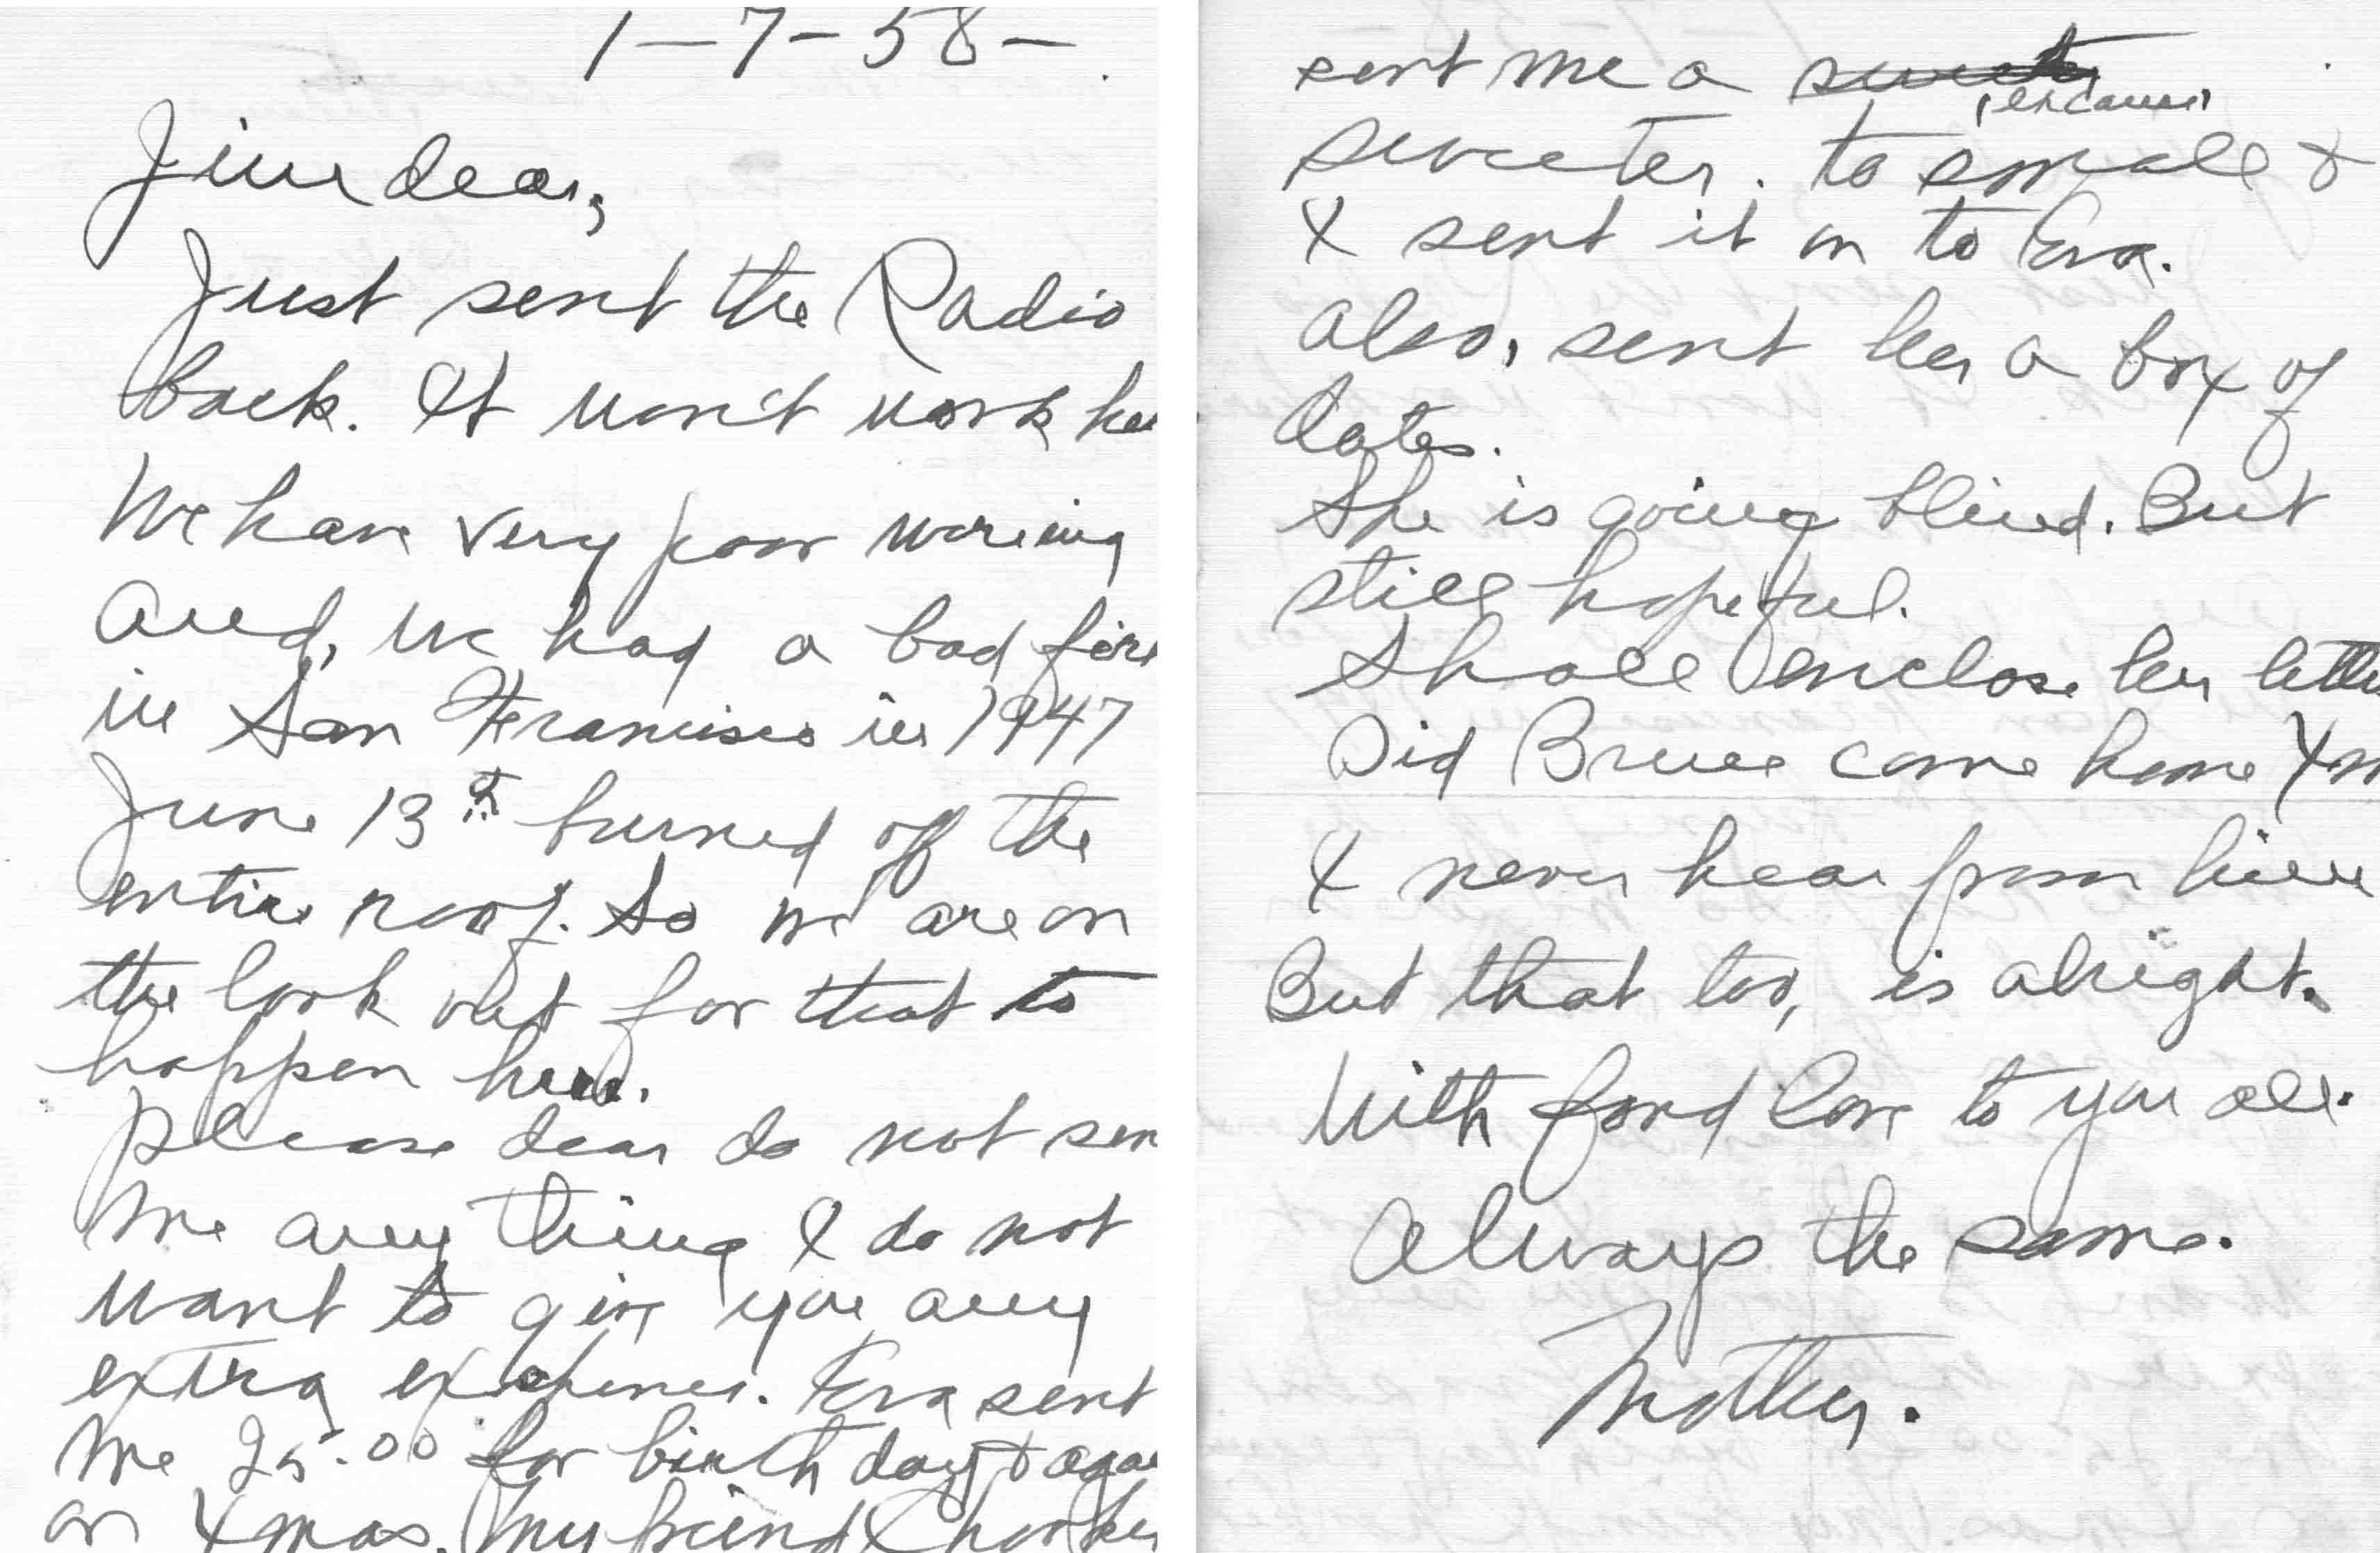 1-7-58-
Jim dear,
Just sent the Radio
back. It won't work he
We have very poor wireing
and, we had a bad fire
in San Francisco in 1947
June 13th burned off the
entire roof. So we are on
the look out for that to
happen here.
please dear do not sen
me any thing I do not
want to give you any
extra expense. Eva sent
me 25.00 for birth day & agai
on Xmas. My friend
sent me a sweet
sweeter. to small &
I sent it on to Eva.
also, sent her a box of
dates.
She is going blind. But
still hopeful.
Shall enclose her lette
Did Bruce come home Xm
I never hear from him
But that too, is alright.
With fond love to you all.
Always the same.
Mother.